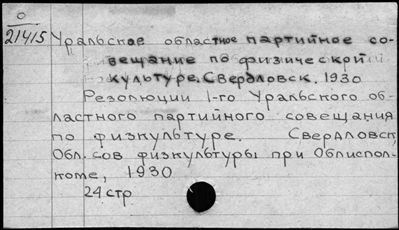 0
21415
Уральское областное партийное со-
вещание по физической
культуре. Свердловск. 1930
Резолюции 1-го Уральского об-
ластного партийного совещания
по физкультуре. Свердловск,
Обл. сов физкультуры при Облиспол-
коме, 1930
24 стр